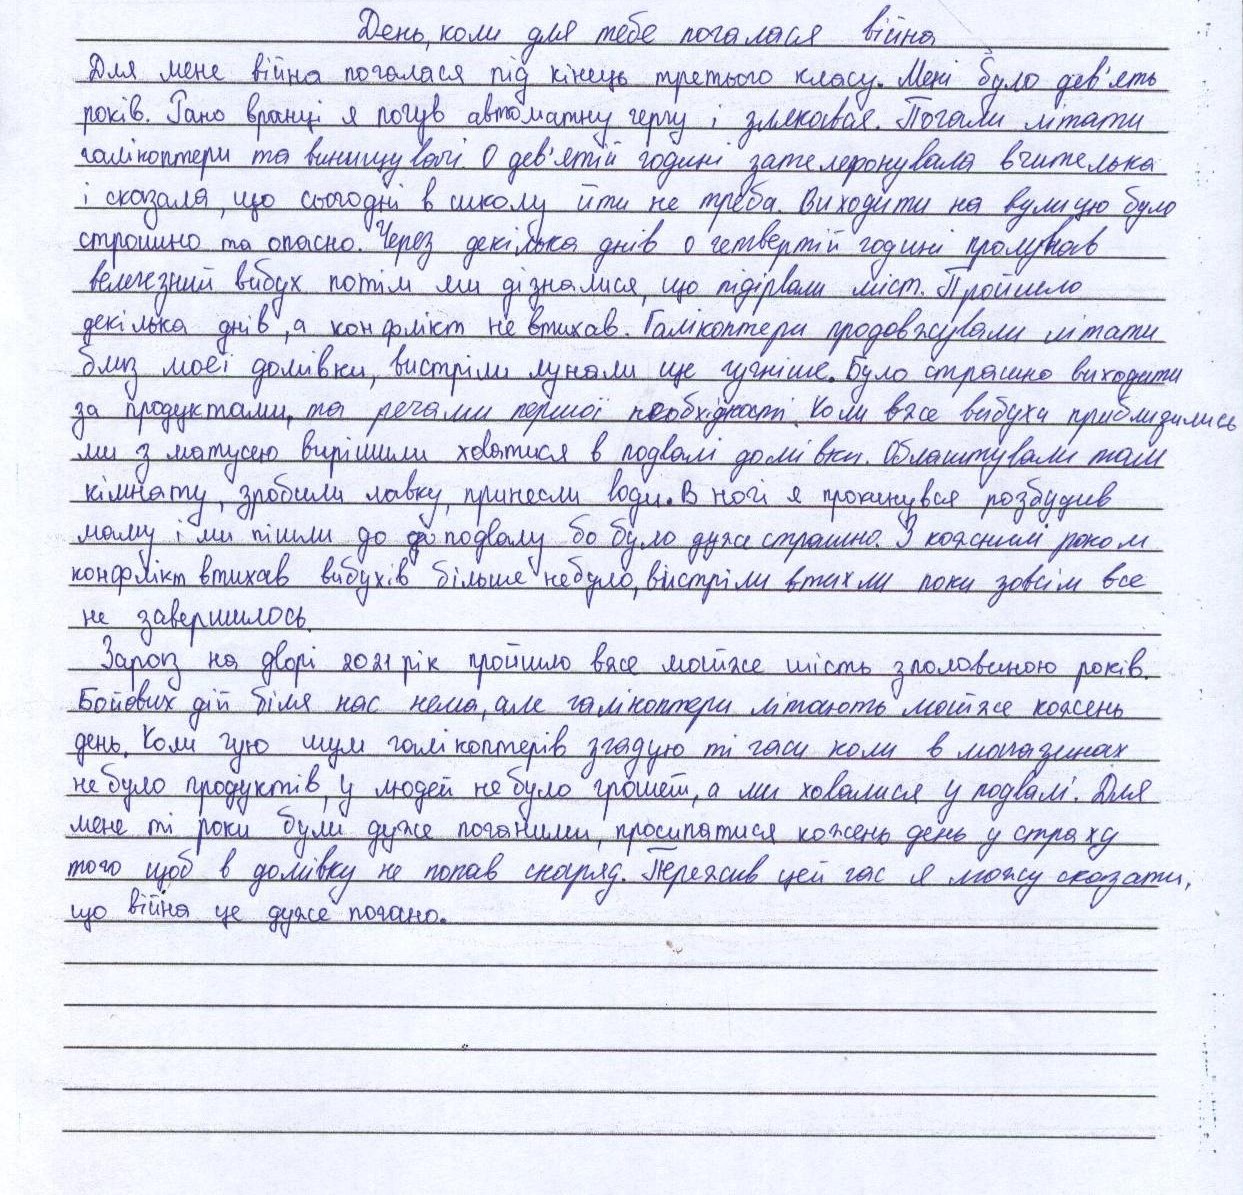 День, коли для тебе почалася війна
Для мене війна почалася під кінець третього класу. Мені було дев'ять
років. Рано вранці я почув автоматну чергу і злякався. Почали літати
галікоптери та винищувачі. О дев'ятій годині зателефонувала вчителька
і сказала, що сьогодні в школу йти не треба. Виходити на вулицю було
страшно та опасно. Через декілька днів о четвертій годині пролунав
величезний вибух потім ми дізналися, що підірвали міст. Пройшло
декілька днів, а конфлікт не втихав. Галікоптери продовжували літати
близ моєї домівки, вистріли лунали ще гучніше. Було страшно виходити
за продуктами, та речами першої необхідності. Коли вже вибухи приблизились
ми з матусею вирішили ховатися в подвалі домівки. Облаштували там
кімнату, зробили лавку, принесли води. В ночі я прокинувся розбудив
маму і ми пішли до подвалу бо було дуже страшно. З кожним роком
конфлікт втихав вибухів більше небуло, вистріли втихли поки зовсім все
не завершилось.
Зараз на дворі 2021 рік пройшло вже майже шість зполовиною років.
Бойових дій біля нас нема, але галікоптери літають майже кожень
день. Коли чую шум галікоптерів згадую ті часи коли в магазинах
небуло продуктів, у людей небуло грошей, а ми ховалися у подвалі. Для
мене ті роки були дуже поганими, просипатися кожень день у страху
того щоб в домівку не попав снаряд. Пережив цей час я можу сказати,
що війна це дуже погано.